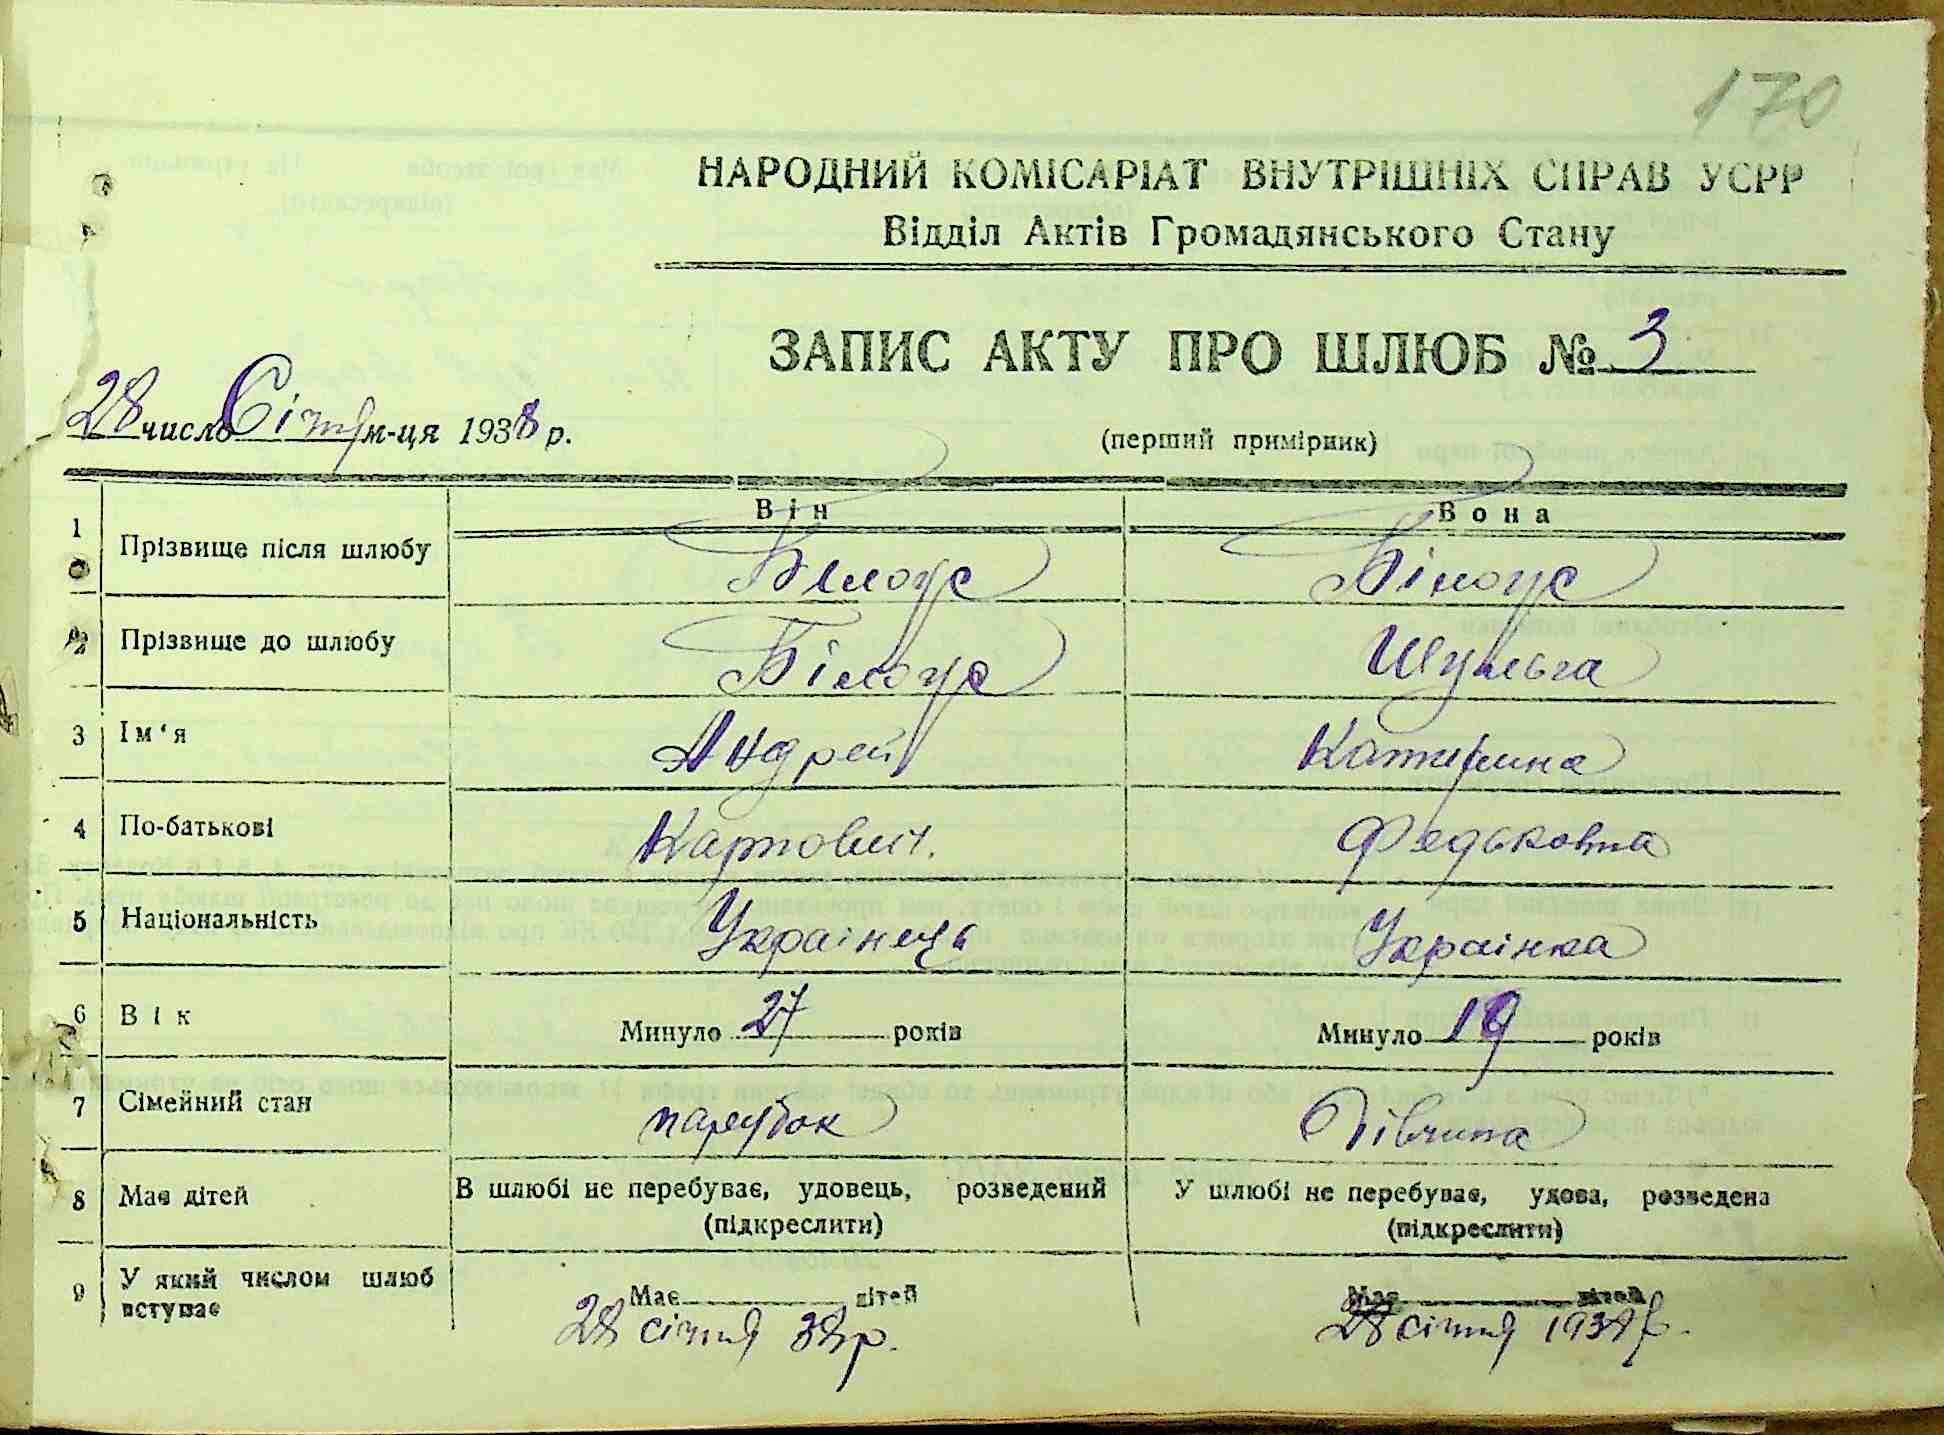 170
НАРОДНИЙ КОМІСАРІАТ ВНУТРІШНІХ СПРАВ УСРР
Відділ Актів Громадянського Стану
ЗАПИС АКТУ ПРО ШЛЮБ № 3
28 число Січня м-ця 1938 р.
(перший примірник)
Він Вона
1 Прізвище після шлюбу Білоус Білоус
2 Прізвище до шлюбу Білоус Шульга
3 Ім'я Андрей Катерина
4 По-батькові Карпович. Федьковна
5 Національність Українець Українка
6 Вік Минуло 27 років Минуло 19 років
7 Сімейний стан парубок Дівчина
8 Має дітей В шлюбі не перебуває, удовець, розведений У шлюбі не перебуває, удова, розведена
(підкреслити) (підкреслити)
9 У який числом шлюб вступає Має дітей Має дітей
28 січня 38 р. 28 січня 1938 р.